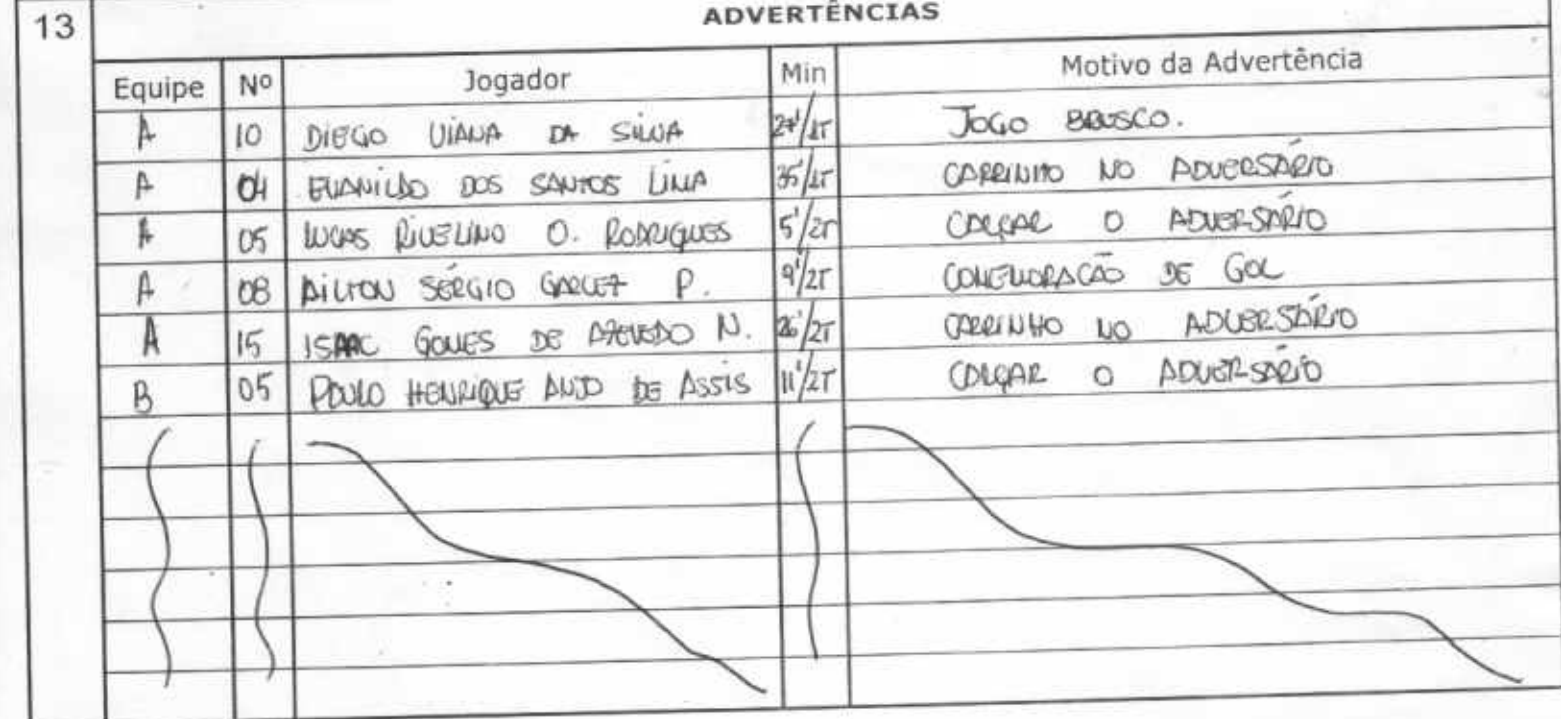 13
ADVERTÊNCIAS
Equipe Nº Jogador Min Motivo da Advertência
A 10 DIEGO VIANA DA SILVA 27'/1T JOGO BRUSCO.
A 04 EVANILDO DOS SANTOS LIMA 35'/1T CARRINHO NO ADVERSÁRIO
A 05 LUCAS RIVELINO O. RODRIGUES 5'/2T CALÇAR O ADVERSÁRIO
A 08 AILTON SÉRGIO GARCEZ P. 9'/2T COMEMORAÇÃO DE GOL
A 15 ISAAC GOMES DE AZEVEDO N. 26'/2T CARRINHO NO ADVERSÁRIO
B 05 PAULO HENRIQUE ANJO DE ASSIS 11'/2T CALÇAR O ADVERSÁRIO